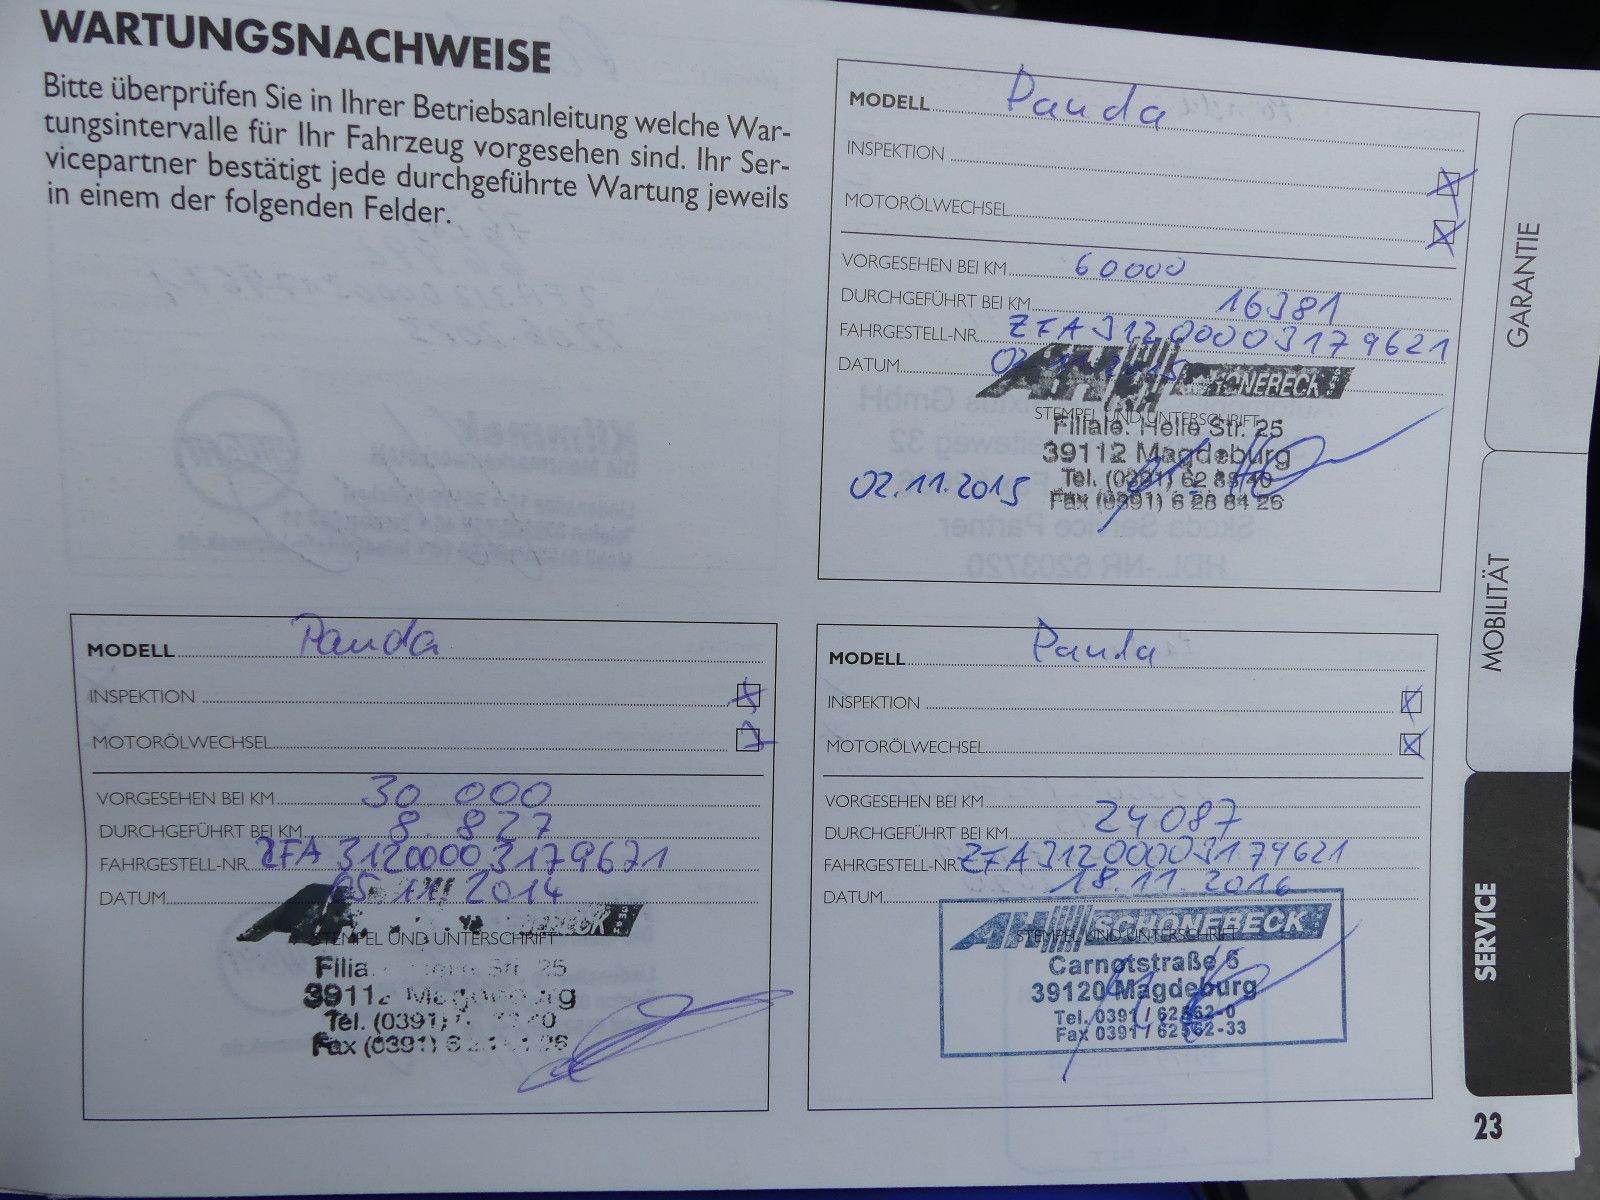 WARTUNGSNACHWEISE
Bitte überprüfen Sie in Ihrer Betriebsanleitung welche War-
tungsintervalle für Ihr Fahrzeug vorgesehen sind. Ihr Ser-
vicepartner bestätigt jede durchgeführte Wartung jeweils
in einem der folgenden Felder.
MODELL Panda
INSPEKTION
MOTORÖLWECHSEL
VORGESEHEN BEI KM 30 000
DURCHGEFÜHRT BEI KM 8.827
FAHRGESTELL-NR. ZFA 3120000 3179621
DATUM 05 11 2014
STEMPEL UND UNTERSCHRIFT
Str. 25
39112 Magdeburg
Tel. (0391)
Fax (0391)
MODELL Panda
INSPEKTION
MOTORÖLWECHSEL
VORGESEHEN BEI KM 60000
DURCHGEFÜHRT BEI KM 16381
FAHRGESTELL-NR. ZFA 3120000 3179621
DATUM 02.11.2015
SCHÖNEBECK
STEMPEL UND UNTERSCHRIFT
Filiale: Helle Str. 25
39112 Magdeburg
Tel. (0391) 62 88 40
02.11.2015
Fax (0391) 6 28 84 26
MODELL Panda
INSPEKTION
MOTORÖLWECHSEL
VORGESEHEN BEI KM
DURCHGEFÜHRT BEI KM 24087
FAHRGESTELL-NR. ZFA 3120000 3179621
DATUM 18.11.2016
AH SCHÖNEBECK
STEMPEL UND UNTERSCHRIFT
Carnotstraße 6
39120 Magdeburg
Tel. 0391 / 62562-0
Fax 0391 / 62562-33
GARANTIE
MOBILITÄT
SERVICE
23